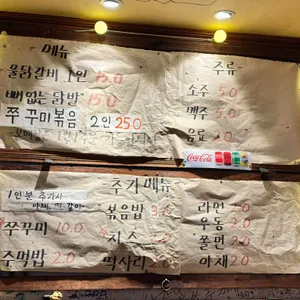 메뉴
물닭갈비 1인 15.0
뼈없는 닭발 15.0
쭈꾸미볶음 2인 25.0
주류
소주 5.0
맥주 5.0
음료
Coca-Cola
1인분 추가시
추가메뉴
쭈꾸미 10.0
주먹밥 2.0
볶음밥
치즈
떡사리 2.0
라면 2.0
우동 2.0
쫄면 2.0
야채 2.0